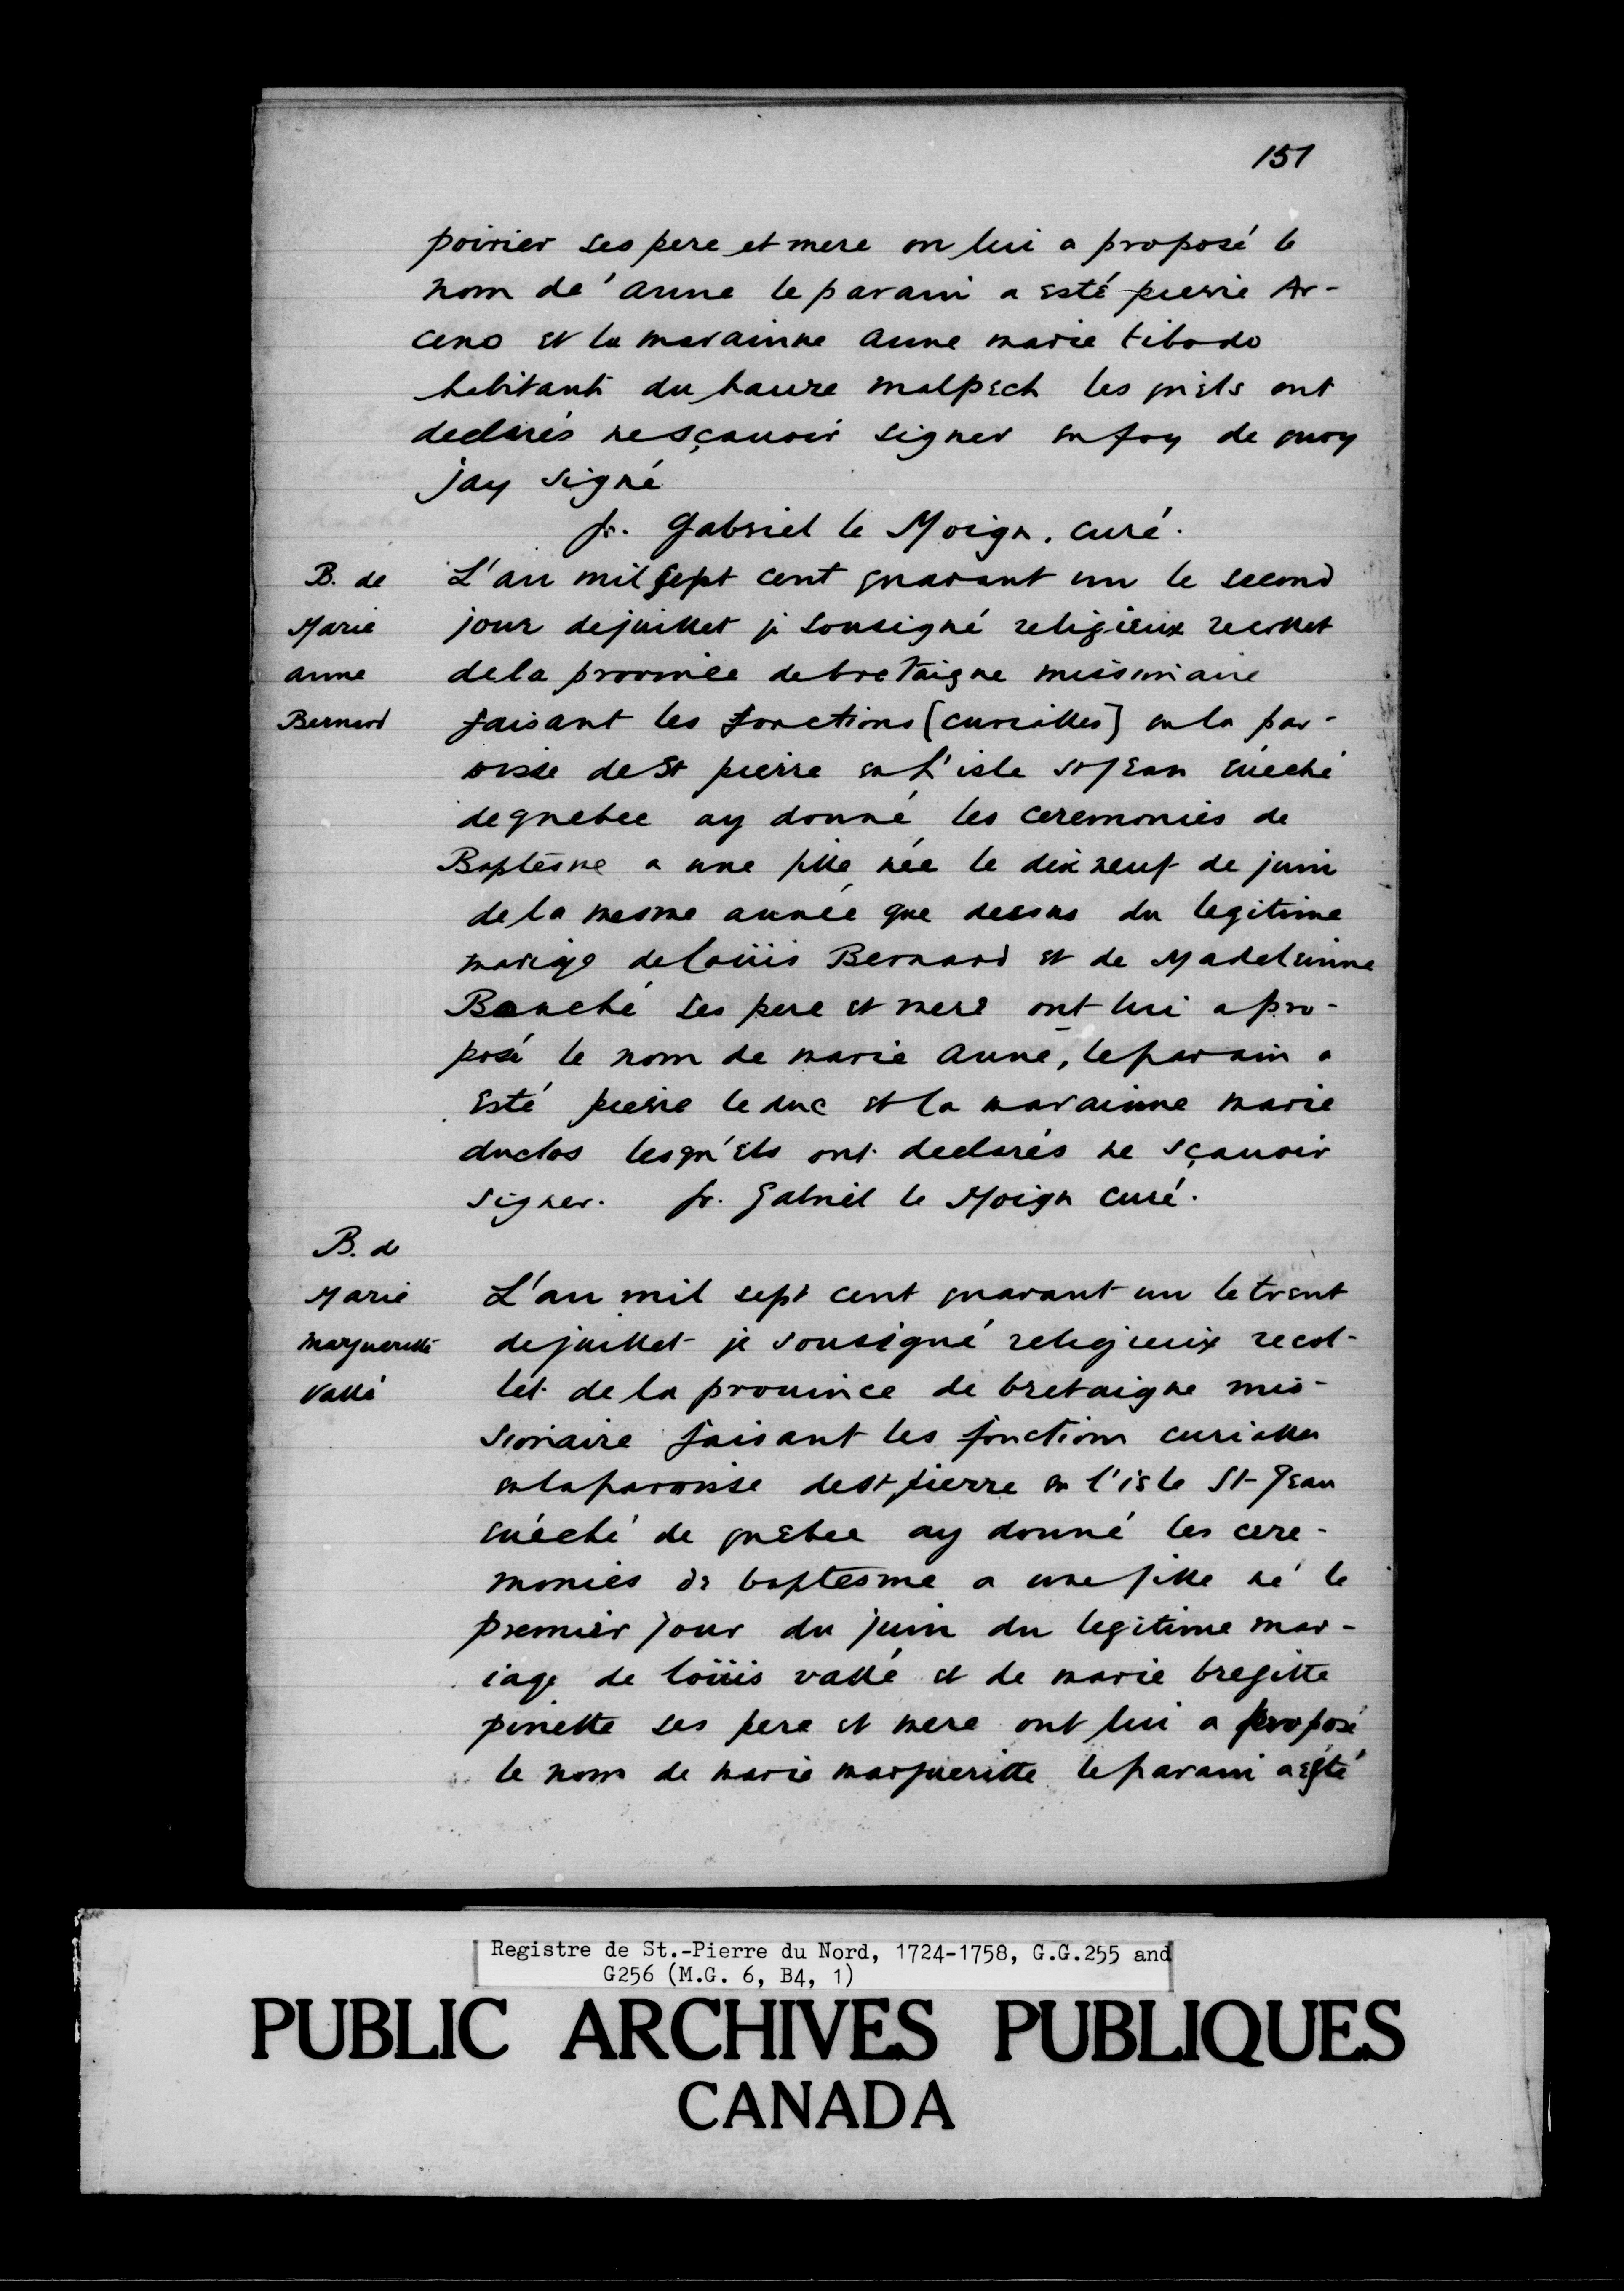 151
poirier ses pere et mere on lui a proposé le
nom de anne le parain a esté pierre Ar-
ceno et la marainne anne marie tibodo
habitants du haure malpech les quels ont
declarés ne sçauoir signer en foy de quoy
jay signé
fr. Gabriel le Moign, curé.
B. de
Marie
anne
Bernard
L'an mil sept cent quarant un le second
jour de juillet je sousigné religieux recollet
de la province de bretaigne missionaire
faisant les fonctions [curialles] en la par-
oisse de St pierre en L'isle st jean éueché
de quebec ay donné les ceremonies de
Baptesme a une fille née le dix neuf de juin
de la mesme année que dessus du legitime
mariage de loüis Bernard et de Madeleinne
Bouché ses pere et mere ont lui a pro-
posé le nom de marie anne, le parain a
esté pierre le duc et la marainne marie
duclos lesquels ont declarés ne sçauoir
signer. fr. Gabriel le Moign curé.
B. de
Marie
Margueritte
Vallé
L'an mil sept cent quarant un le trent
de juillet je sousigné religieux recol-
let de la prouince de bretaigne mis-
sionaire faisant les fonctions curialles
en la paroisse de st pierre en l'isle St Jean
éuéché de quebec ay donné les cere-
monies de baptesme a une fille né le
premier jour du juin du legitime mar-
iage de loüis vallé et de marie bregitte
pinette ses pere et mere ont lui a proposé
le nom de marie marguerite le parain a esté
Registre de St.-Pierre du Nord, 1724-1758, G.G.255 and
G256 (M.G. 6, B4, 1)
PUBLIC ARCHIVES PUBLIQUES
CANADA